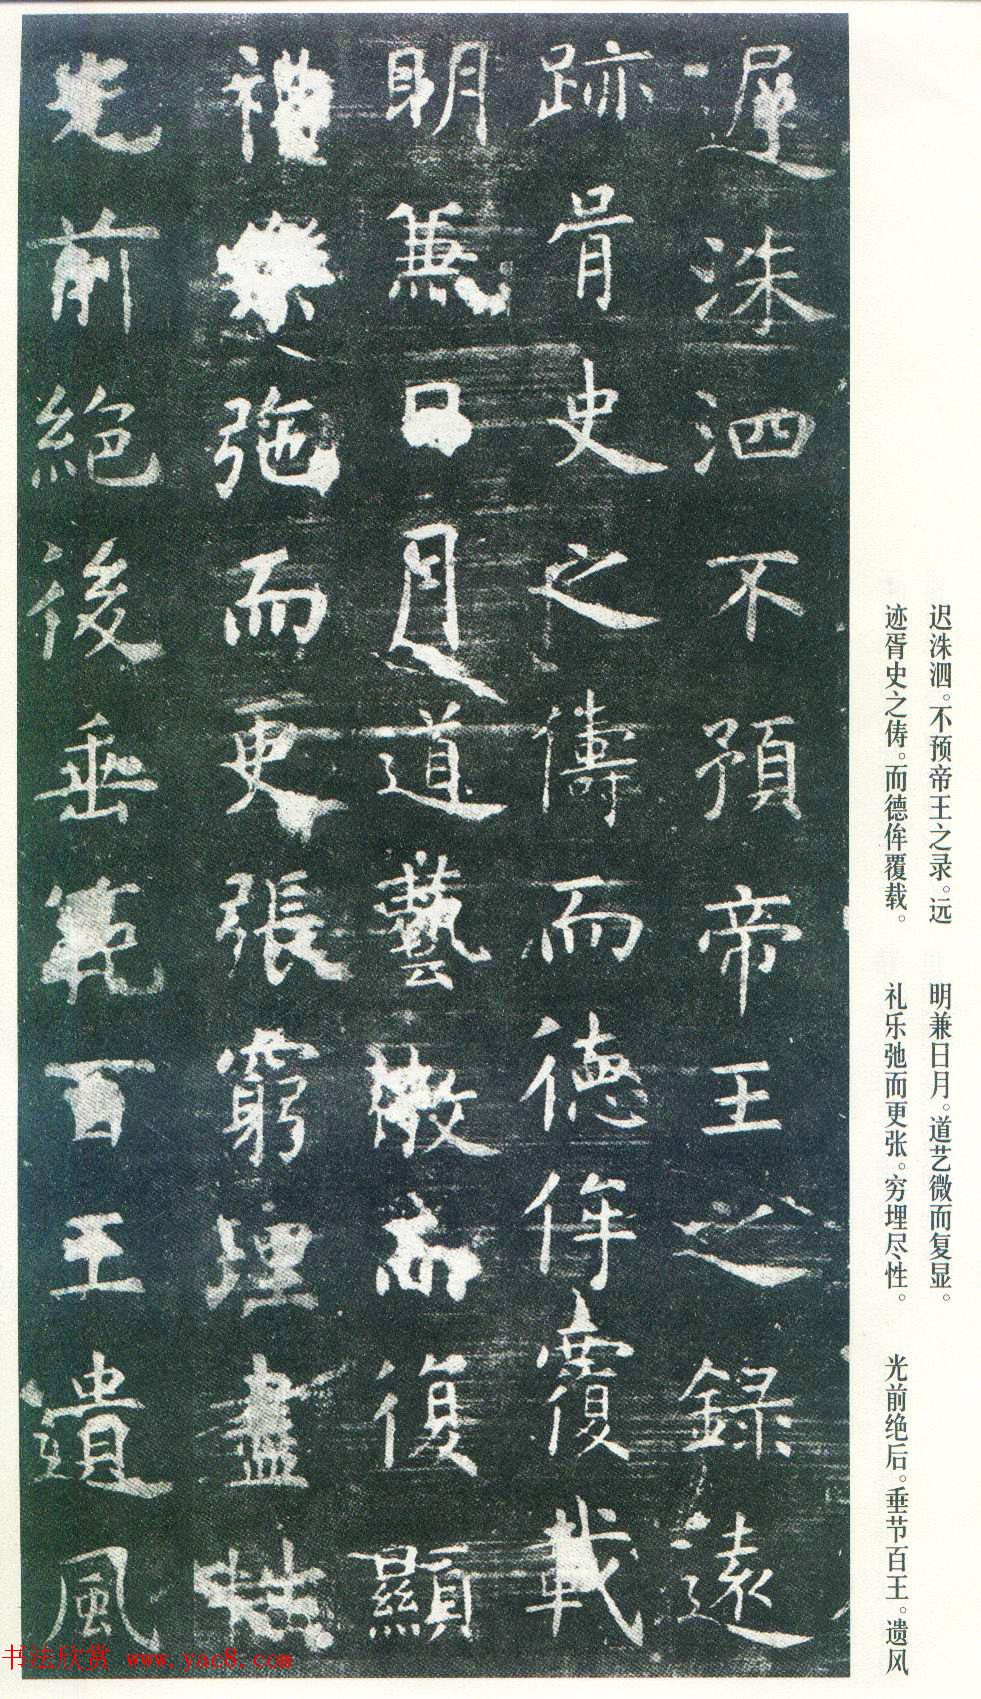 迟洙泗。不预帝王之录。远
迹胥史之俦。而德侔覆载。
明兼日月。道艺微而复显。
礼乐弛而更张。穷埋尽性。
光前绝后。垂节百王。遗风
遲洙泗不預帝王之錄遠
跡胥史之儔而德侔覆載
明兼日月道藝微而復顯
禮樂弛而更張窮理盡性
光前絕後垂範百王遺風
书法欣赏 www.yac8.com